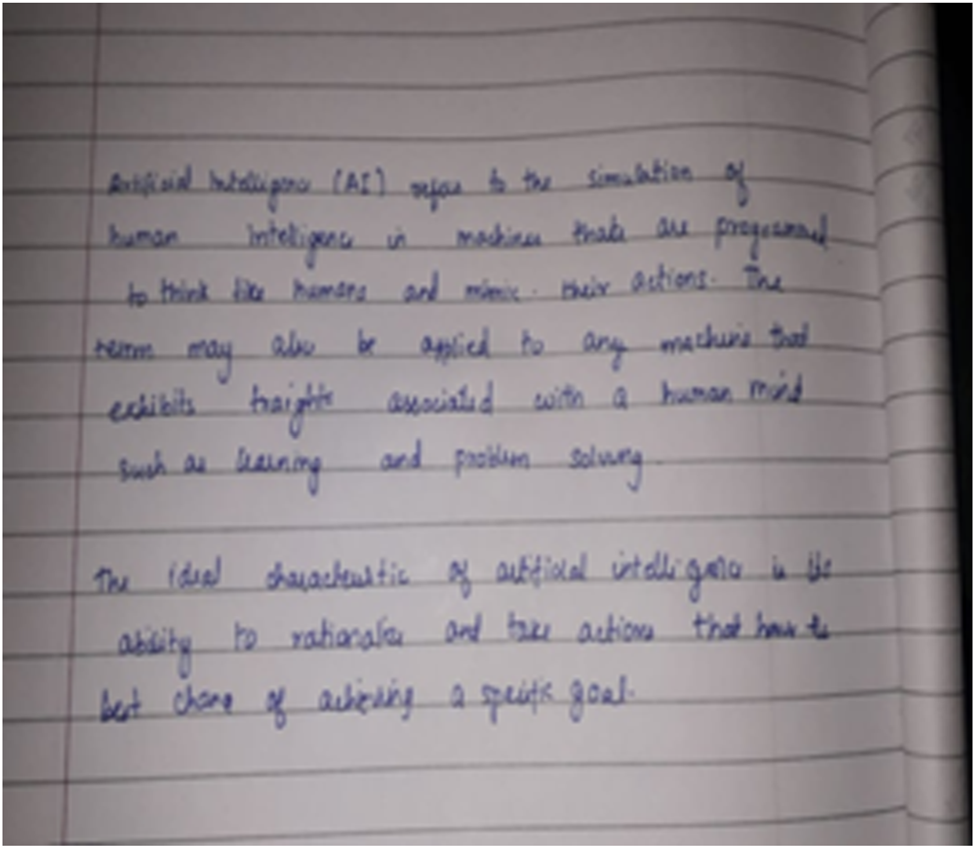 Artificial Intelligence (AI) refers to the simulation of
human intelligence in machines that are programmed
to think like humans and mimic their actions. The
term may also be applied to any machine that
exhibits traights associated with a human mind
such as learning and problem solving.
The ideal characteristic of artificial intelligence is its
ability to rationalize and take actions that have the
best chance of achieving a specific goal.